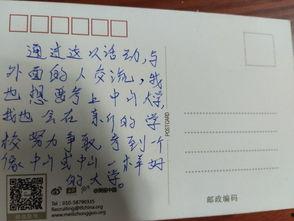 通过这次活动,与
外面的人交流,我
也想要考上中山大学,
我也会在新的学
校努力争取考到一个
像中山或中山一样好
的大学。
POSTCARD
邮政编码
Tel: 010-58790335